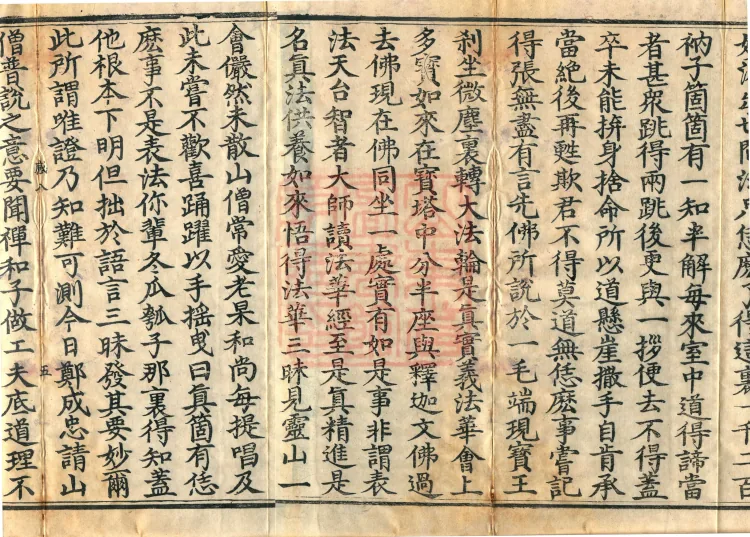 衲子箇箇有一知半解每來室中道得諦當
者甚衆跳得兩跳後更與一拶便去不得蓋
卒未能拚身捨命所以道懸崖撒手自肯承
當絶後再甦欺君不得莫道無恁麽事嘗記
得張無盡有言先佛所說於一毛端現寶王
刹坐微塵裏轉大法輪是眞實義法華會上
多寶如來在寶塔中分半座與釋迦文佛過
去佛現在佛同坐一處實有如是事非謂表
法天台智者大師讀法華經至是眞精進是
名眞法供養如來悟得法華三昧見靈山一
會儼然未散山僧常愛老杲和尚每提唱及
此未嘗不歡喜踊躍以手搖曳曰眞箇有恁
麽事不是表法你輩冬瓜瓠子那裏得知蓋
他根本下明但拙於語言三昧發其要妙爾
此所謂唯證乃知難可測今日鄭成忠請山
五
僧普說之意要聞禪和子做工夫底道理不